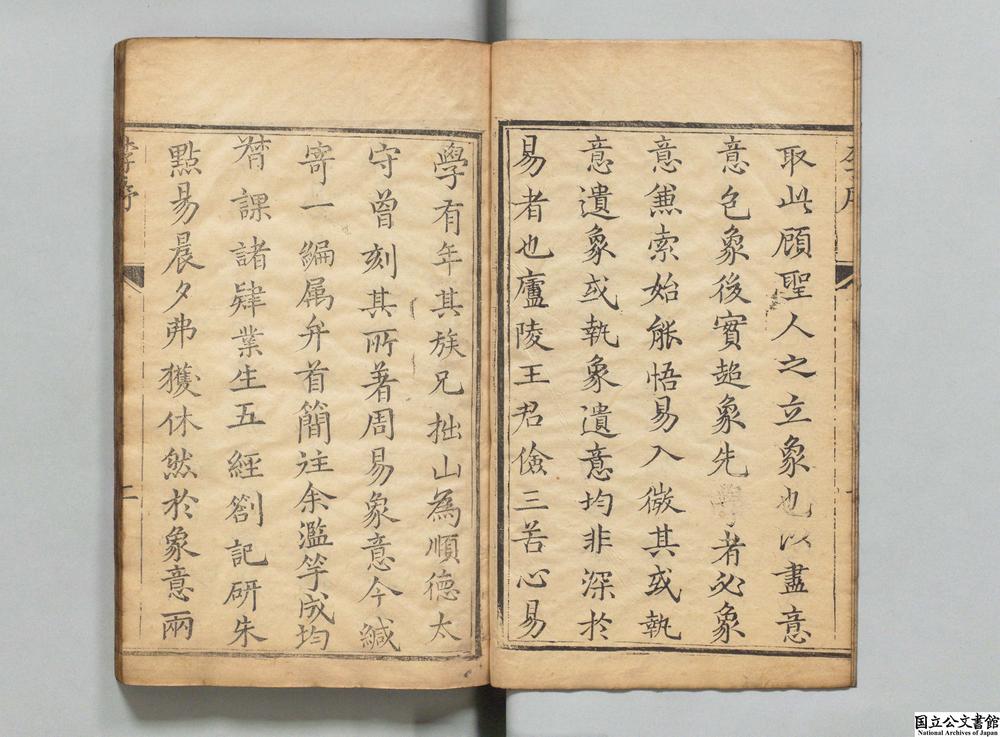 取此顧聖人之立象也以盡意
意包象後實超象先學者必象
意兼索始能悟易入微其或執
意遺象或執象遺意均非深於
易者也廬陵王君儉三苦心易
學有年其族兄拙山為順德太
守曾刻其所著周易象意今緘
寄一編属弁首簡註余濫竽成均
督課諸肄業生五經劄記研朱
點易晨夕弗獲休然於象意兩
李序
二
国立公文書館
National Archives of Japan